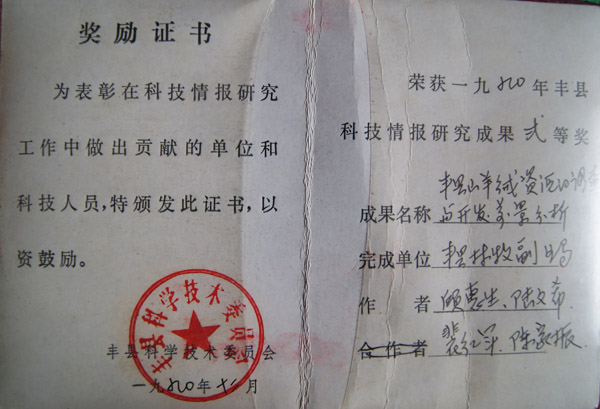 奖励证书
为表彰在科技情报研究
工作中做出贡献的单位和
科技人员，特颁发此证书，以
资鼓励。
丰县科学技术委员会
丰县科学技术委员会
一九九〇年十二月
荣获一九九〇年丰县
科技情报研究成果 贰 等奖
丰县山羊绒资源的调查
成果名称 与开发前景分析
完成单位 丰县林牧副业局
作 者 顾惠生、陆文希
合作者 裴红军、陈家振